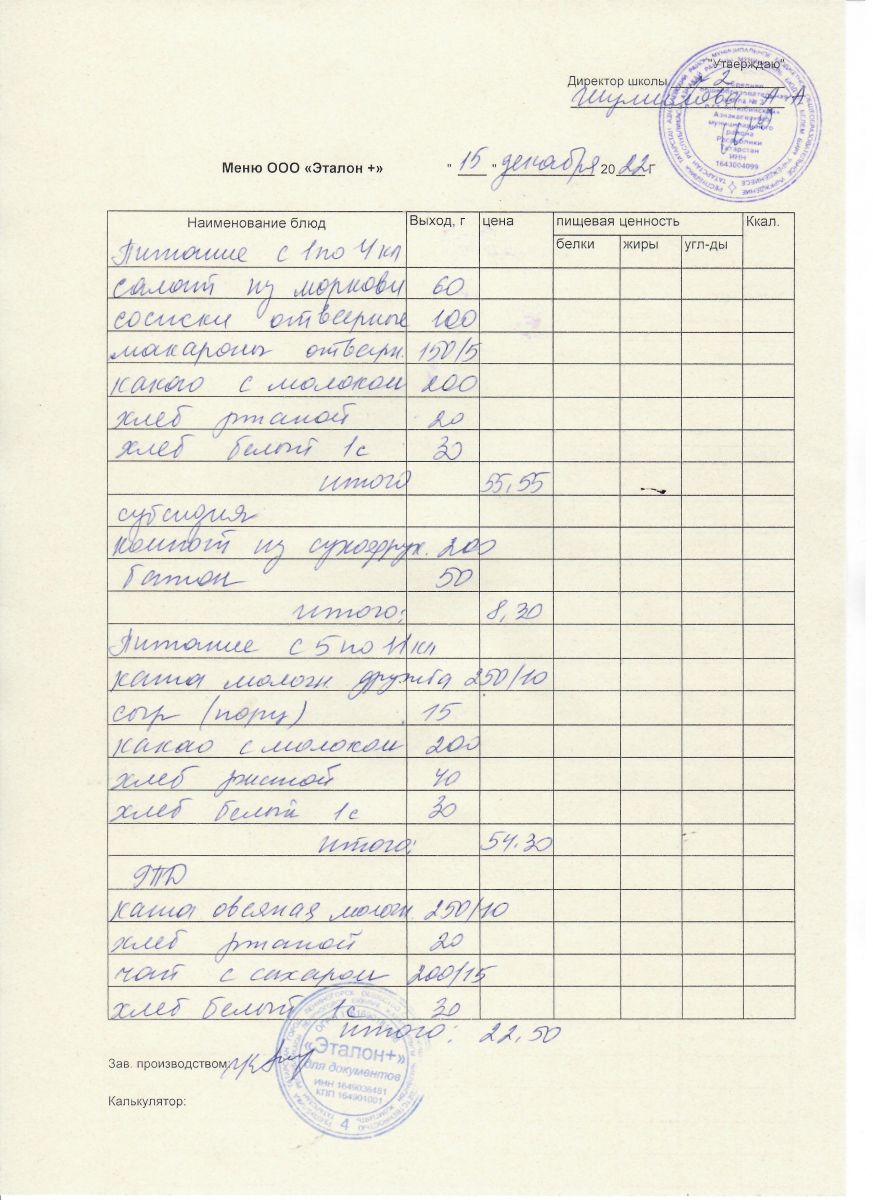 "Утверждаю"
Директор школы № 2
Меню ООО «Эталон +» " 15 " декабря 20 22 г
Наименование блюд Выход, г цена пищевая ценность Ккал.
белки жиры угл-ды
Питание с 1 по 4 кл
салат из моркови 60
сосиски отварные 100
макароны отварн. 150/5
какао с молоком 200
хлеб ржаной 20
хлеб белый 1с 30
итого 55,55
субсидия
компот из сухофрук. 200
батон 50
итого: 8,30
Питание с 5 по 11 кл
каша молочн. дружба 250/10
сыр (порц) 15
какао с молоком 200
хлеб ржаной 40
хлеб белый 1с 30
итого: 54.30
ГПД
каша овсяная молочн. 250/10
хлеб ржаной 20
чай с сахаром 200/15
хлеб белый 1с 30
итого: 22,50
Зав. производством:
Калькулятор:
Азнакаевского
муниципального
района
Республики
Татарстан
ИНН
1643004099
«Эталон+»
для документов
ИНН 1649036481
КПП 164901001
4